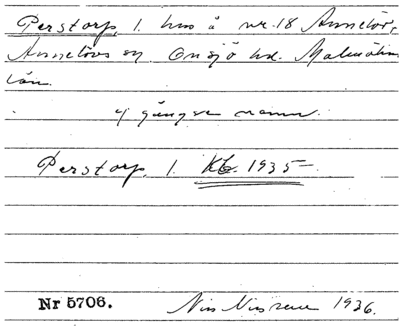 Perstorp, 1. hus å nr. 18 Annelöv,
Annelövs sn Onsjö hd. Malmöhus
län.
Ej gängse namn.
Perstorp, 1. Kb. 1935
Nr 5706. Nils Nilsson 1936.